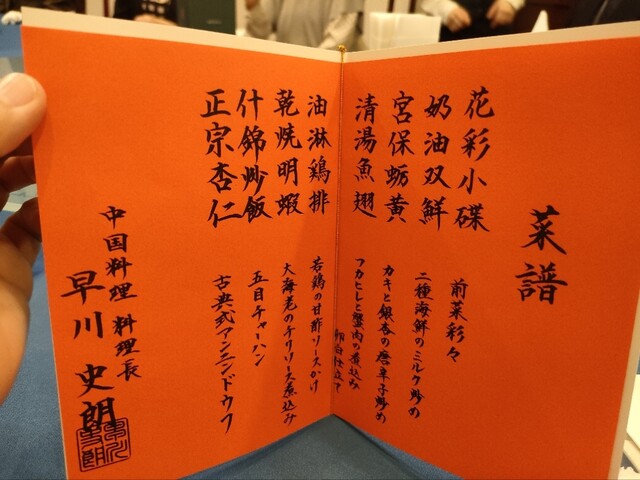 菜譜
花彩小碟
前菜彩々
奶油双鮮
二種海鮮のミルク炒め
宮保蛎黄
カキと銀杏の唐辛子炒め
清湯魚翅
フカヒレと蟹肉の煮込み
卵白仕立て
油淋鶏排
若鶏の甘酢ソースかけ
乾焼明蝦
大海老のチリソース煮込み
什錦炒飯
五目チャーハン
正宗杏仁
古典式アンニンドウフ
中国料理 料理長
早川 史朗